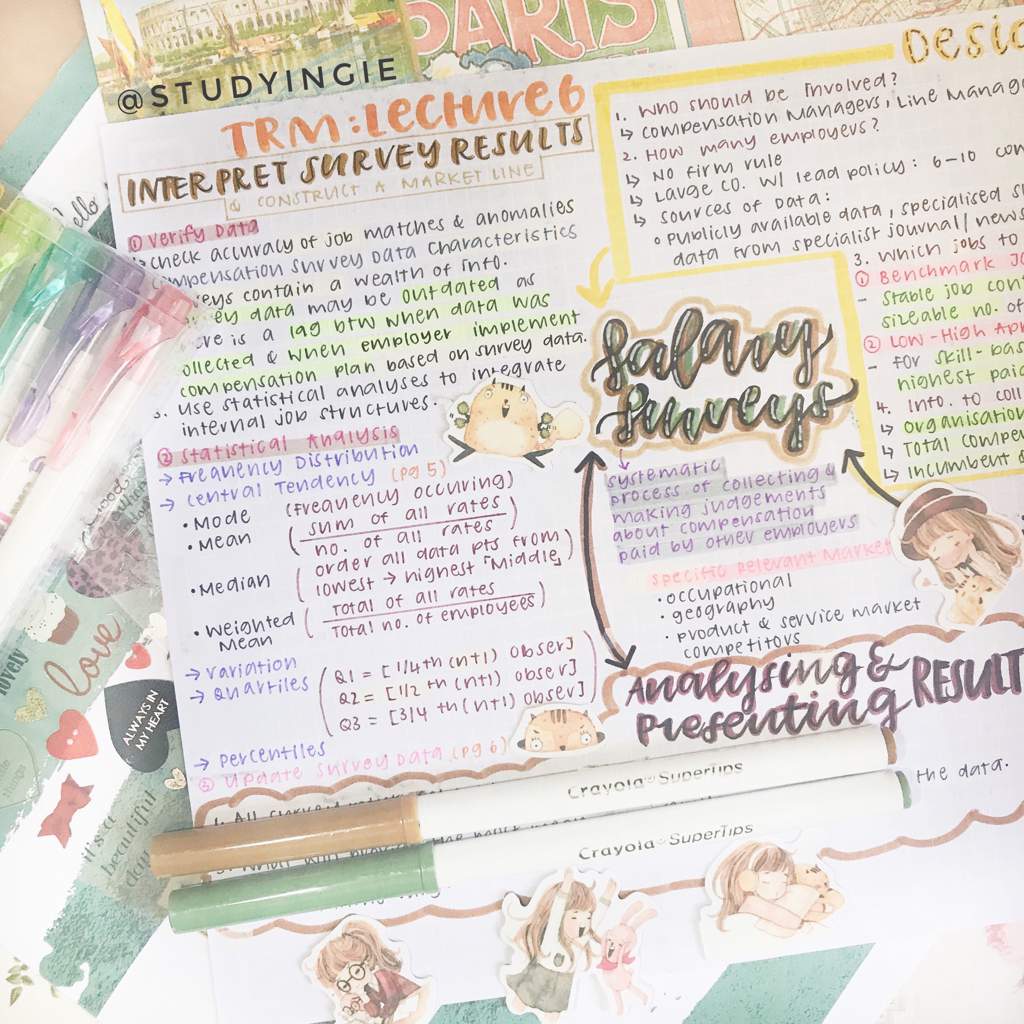 PARIS
@STUDYINGIE
TRM: Lecture 6
INTERPRET SURVEY RESULTS
& CONSTRUCT A MARKET LINE
① Verify Data
check accuracy of job matches & anomalies
compensation survey data characteristics
surveys contain a wealth of info.
data may be outdated as
there is a lag btw when data was
collected & when employer implement
compensation plan based on survey data.
3. Use statistical analyses to integrate
internal job structures.
② Statistical Analysis
→ Frequency Distribution
→ Central Tendency (pg 5)
• Mode (Frequency occuring)
• Mean (sum of all rates
no. of all rates)
• Median (order all data pts from
lowest → highest "Middle")
• Weighted Mean (Total of all rates
Total no. of employees)
→ Variation
→ Quartiles
(Q1 = [1/4th (n+1) obser]
Q2 = [1/2 th (n+1) obser]
Q3 = [3/4 th (n+1) obser])
→ Percentiles
③ Update Survey Data (pg 6)
1. All
Desig
1. Who should be involved?
↳ Compensation Managers, Line Manag
2. How many employers?
↳ No firm rule
↳ Large Co. w/ lead policy: 6-10 com
↳ Sources of Data:
o Publicly available data, specialised
data from specialist journal/news
3. Which jobs to
① Benchmark Jo
- Stable job cont
sizeable no. of
② Low-High App
- for skill-bas
highest paid
4. Info. to coll
↳ organisation
↳ Total compe
↳ Incumbent &
Salary
Surveys
systematic
process of collecting &
making judgements
about compensation
paid by other employers
Specific Relevant Market
• occupational
• geography
• product & service market
competitors
Analysing &
Presenting RESULT
the data.
Crayola SuperTips
Crayola SuperTips
Hello
love
lovely
ALWAYS IN
MY HEART
it's a
beautiful